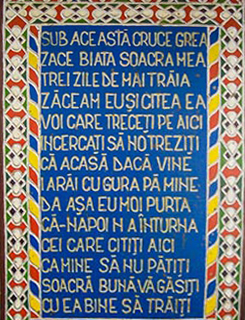 SUB ACEASTĂ CRUCE GREA
ZACE BIATA SOACRA MEA
TREI ZILE DE MAI TRĂIA
ZĂCEAM EU ȘI CITEA EA
VOI CARE TRECEȚI PE AICI
INCERCAȚI SĂ NO TREZIȚI
CĂ ACASĂ DACĂ VINE
IARĂI CU GURA PĂ MINE
DA AȘA EU MOI PURTA
CĂ-NAPOI N A ÎNTURNA
CEI CARE CITIȚI AICI
CA MINE SĂ NU PĂȚIȚI
SOACRĂ BUNĂ VĂ GĂSIȚI
CU EA BINE SĂ TRĂIȚI